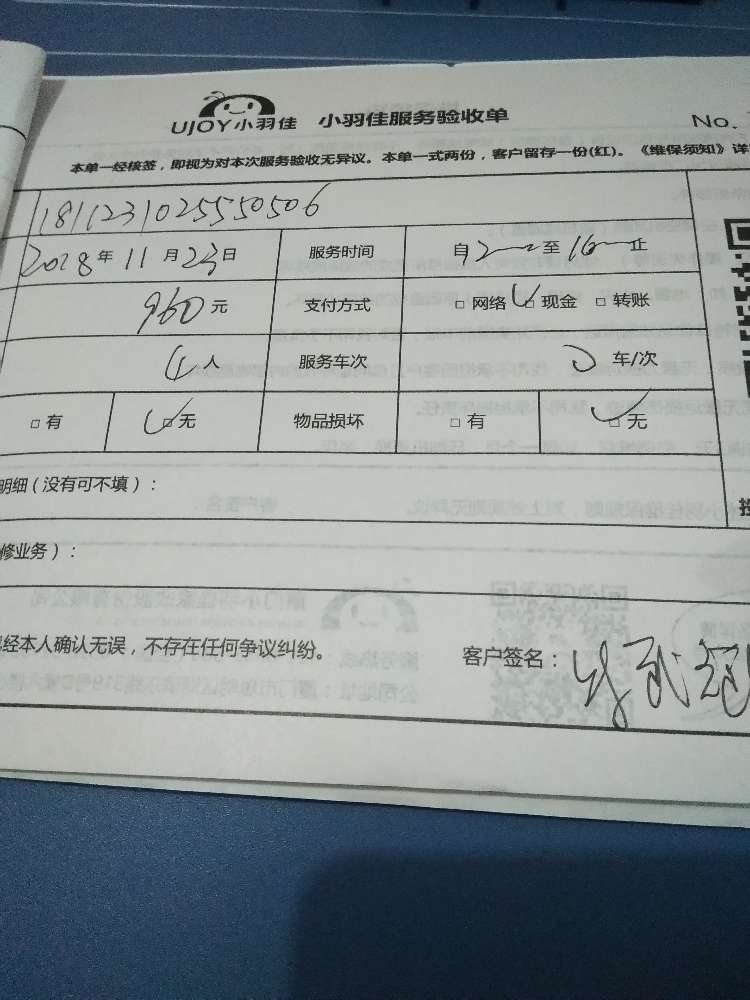 UJOY小羽佳 小羽佳服务验收单
No.
本单一经核签，即视为对本次服务验收无异议。本单一式两份，客户留存一份(红)。《维保须知》详
181123102555050506
2018年11月23日 服务时间 自 至 止
960元 支付方式 □网络 □现金 □转账
4人 服务车次 车/次
□有 □无 物品损坏 □有 □无
明细（没有可不填）：
修业务）：
经本人确认无误，不存在任何争议纠纷。 客户签名：